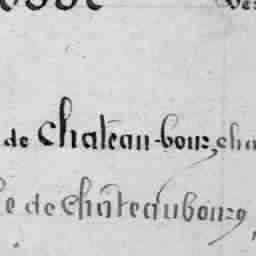 de chateau-bourg, cha
de chateaubourg,